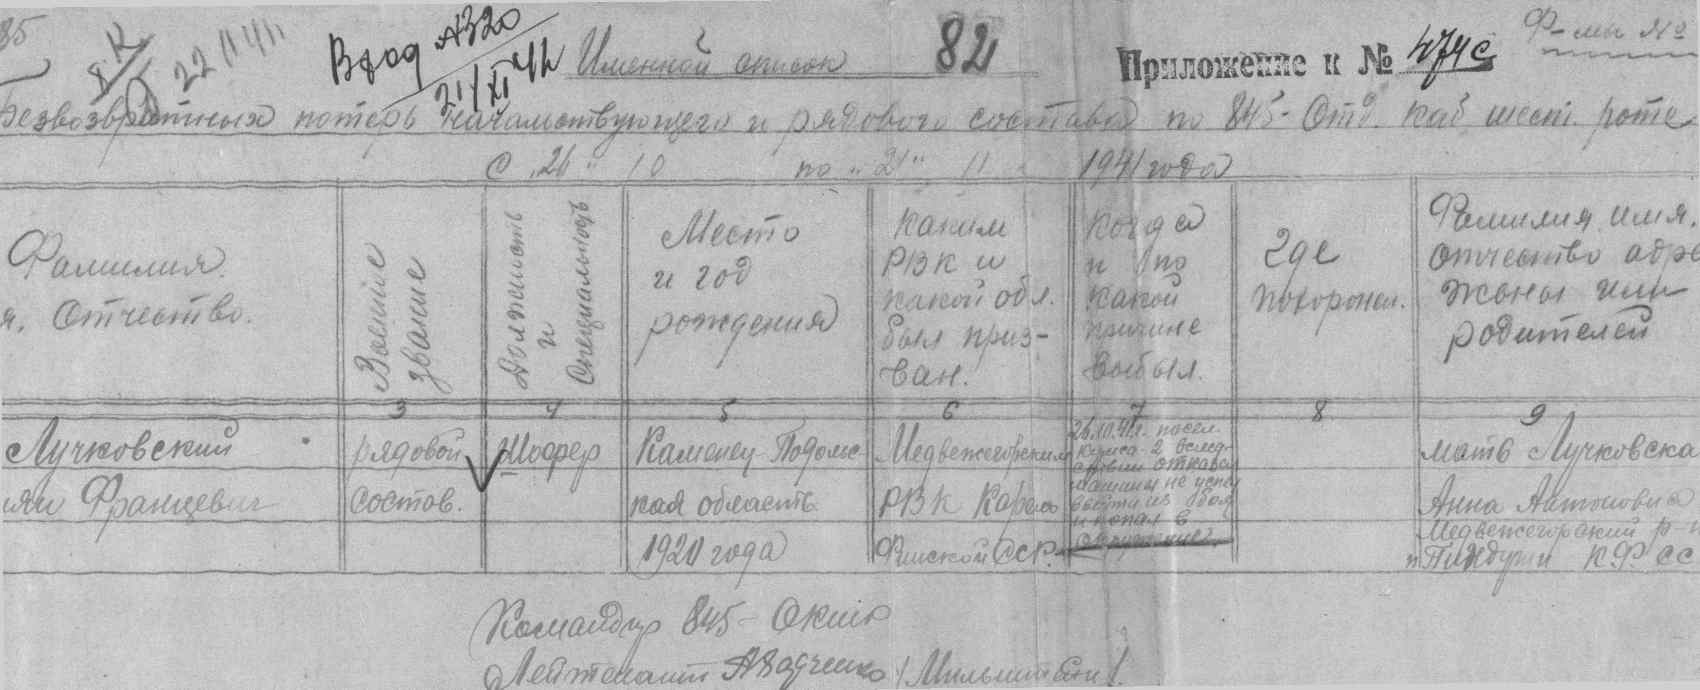 85
22 11 41
Вход А320
21/XI 41
Именной список
82
Приложение к № 474с
Ф-мы №
безвозвратных потерь начальствующего и рядового состава по 845- Отд. каб шест. роте
с „26" 10 по „21" 11 1941 года
Фамилия
я. Отчество.
Военное звание
Должность и Специальность
Место
и год
рождения
каким
РВК и
какой обл.
был приз-
ван.
Когда
и по
какой
причине
выбыл.
где
похоронен.
Фамилия имя.
отчество адре
жены или
родителей
3 4 5 6 7 8 9
Лучковский
Францевич
рядовой
состов.
Шофер
Каменец-Подольс
кая область
1920 года
Медвежегорским
РВК Карело
Финской ССР.
26.10.41г. посел.
2 вслед-
ствии отказа
машины не успел
выйти из боя
и попал в
окружение.
мать Лучковска
Анна Антоновна
Медвежегорский р-н
п Пиндуши К.Ф. СС
Командир 845- ОКШР
Лейтенант